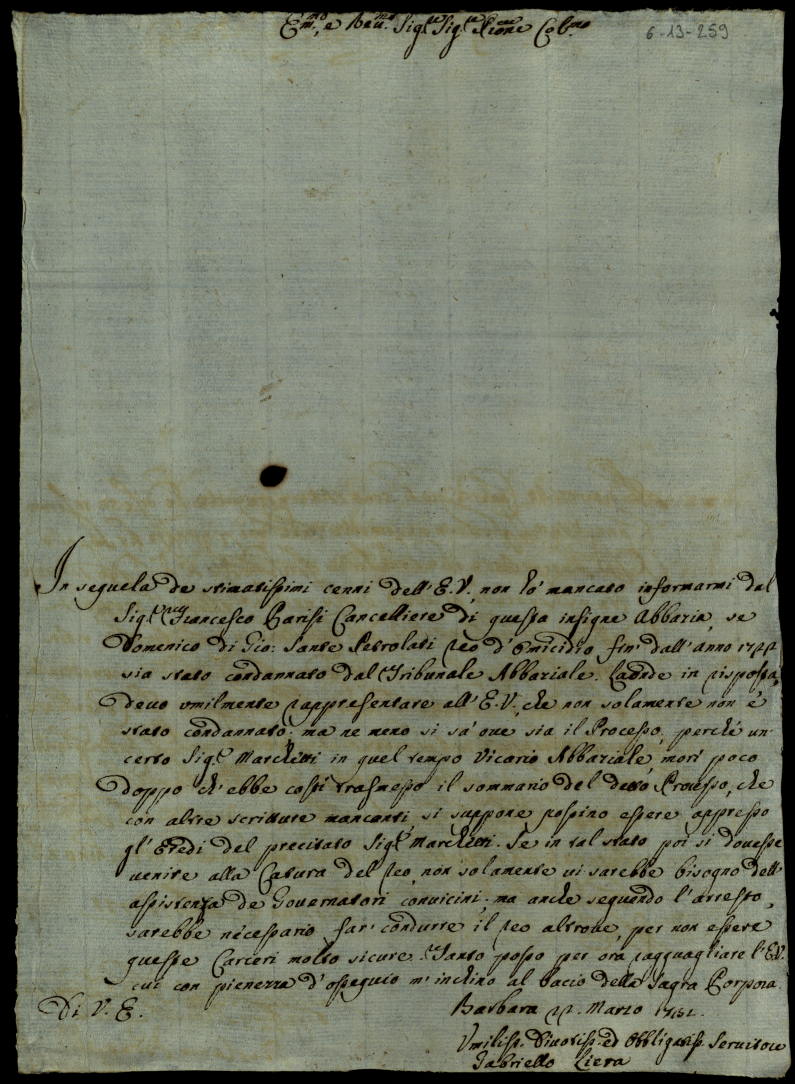 Em.mo, e Reu.mo Sig.re Sig.re P.rone Col.mo
6-13-259
In seguela de stimatissimi cenni dell'E.V. non hò mancato informarmi dal
Sig.r Francesco Parisi Cancelliere di questa insigne Abbazia, se
Domenico di Gio: Sante Petrolati reo d'Omicidio fin' dall'anno 1722
sia stato condannato dal Tribunale Abbaziale. Laonde in risposta,
deuo umilmente rappresentare all'E.V., che non solamente non è
stato condannato; ma ne meno si sà oue sia il Processo, perché un'
certo Sig.r Marchetti in quel tempo Vicario Abbaziale, morì poco
doppo ch'ebbe costì trasmesso il sommario del detto Processo, che
con altre scritture mancanti si suppone possino essere appresso
gl'Eredi del precitato Sig.r Marchetti. Se in tal stato poi si douesse
uenire alla Catura del reo, non solamente ui sarebbe bisogno dell'
assistenza de Gouernatori conuicini; ma anche seguendo l'arresto,
sarebbe necessario far' condurre il reo altroue, per non essere
queste Carceri molto sicure. Tanto posso per ora ragguagliare l'E.V.
cui con pienezza d'ossequio m'inchino al bacio della Sagra Porpora.
Di V.E. Barbara 22. Marzo 1732.
Vmiliss. Diuotiss. ed Obbligatiss. Seruitore
Gabriello Liera